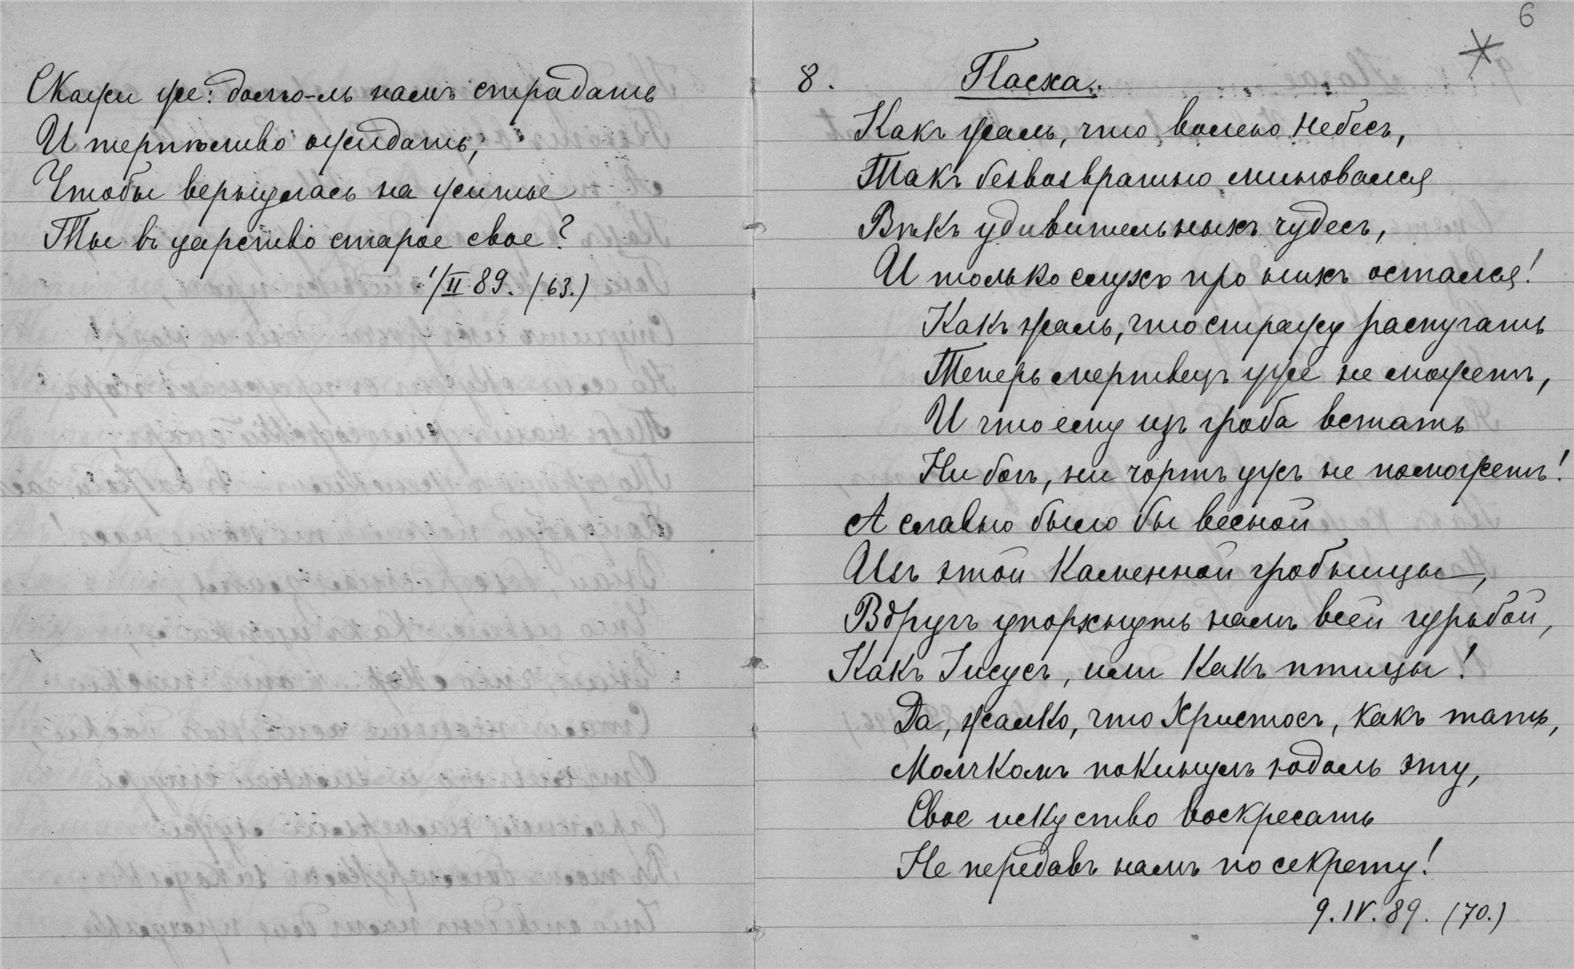 Скажи же: долго-ль намъ страдать
И терпѣливо ожидать,
Чтобы вернулась на житье
Ты въ царство старое свое?
1/II 89. (63.)
6
8. Пасха.
Какъ жаль, что волею Небесъ,
Такъ безвозвратно миновался
Вѣкъ удивительныхъ чудесъ,
И только слухъ про нихъ остался!
Какъ жаль, что стражу распугать
Теперь мертвецъ уже не можетъ,
И что ему изъ гроба встать
Ни богъ, ни чортъ ужъ не поможетъ!
А славно было бы весной
Изъ этой каменной гробницы,
Вдругъ упорхнуть намъ всей гурьбой,
Какъ Iисусъ, или какъ птицы!
Да, жалко, что Христосъ, какъ тать,
Молчкомъ покинулъ юдоль эту,
Свое искуство воскресать
Не передавъ намъ по секрету!
9.IV.89. (70.)